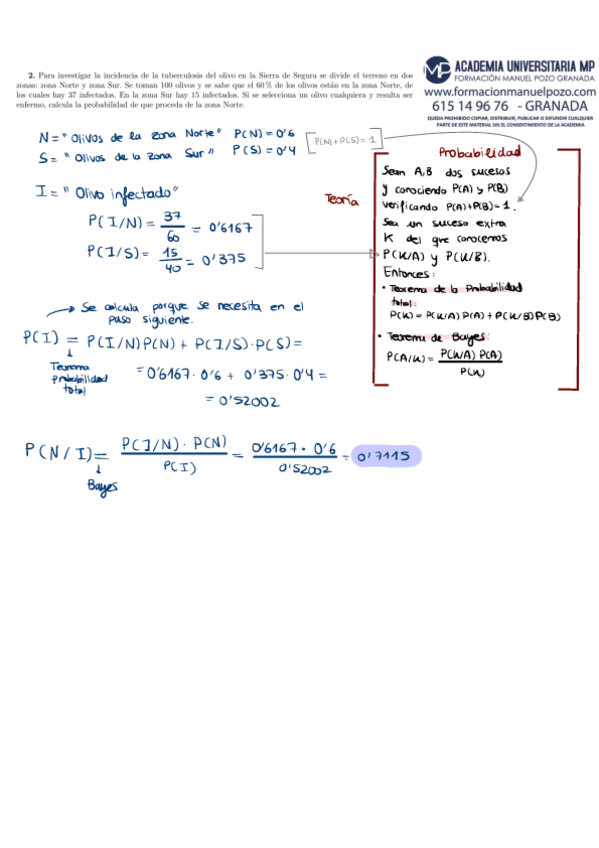 MP ACADEMIA UNIVERSITARIA MP
FORMACIÓN MANUEL POZO GRANADA
www.formacionmanuelpozo.com
615 14 96 76 - GRANADA
QUEDA PROHIBIDO COPIAR, DISTRIBUIR, PUBLICAR O DIFUNDIR CUALQUIER
PARTE DE ESTE MATERIAL SIN EL CONSENTIMIENTO DE LA ACADEMIA
2. Para investigar la incidencia de la tuberculosis del olivo en la Sierra de Segura se divide el terreno en dos
zonas: zona Norte y zona Sur. Se toman 100 olivos y se sabe que el 60 % de los olivos están en la zona Norte, de
los cuales hay 37 infectados. En la zona Sur hay 15 infectados. Si se selecciona un olivo cualquiera y resulta ser
enfermo, calcula la probabilidad de que proceda de la zona Norte.
N = "Olivos de la zona Norte" P(N) = 0'6
S = "Olivos de la zona Sur" P(S) = 0'4
P(N)+P(S)=1
I = "Olivo infectado"
P(I/N) = 37/60 = 0'6167
P(I/S) = 15/40 = 0'375
Teoría
Probabilidad
Sean A,B dos sucesos
y conociendo P(A) y P(B)
verificando P(A)+P(B)=1.
Sea un suceso extra
K del que conocemos
P(K/A) y P(K/B).
Entonces:
• Teorema de la Probabilidad
total:
P(K) = P(K/A)P(A) + P(K/B)P(B)
• Teorema de Bayes:
P(A/K) = P(K/A) P(A) / P(K)
→ Se calcula porque se necesita en el
paso siguiente.
P(I) = P(I/N)P(N) + P(I/S)·P(S) =
↓
Teorema
probabilidad
total
= 0'6167·0'6 + 0'375·0'4 =
= 0'52002
P(N/I) = P(I/N)·P(N) / P(I) = 0'6167·0'6 / 0'52002 = 0'7115
↓
Bayes